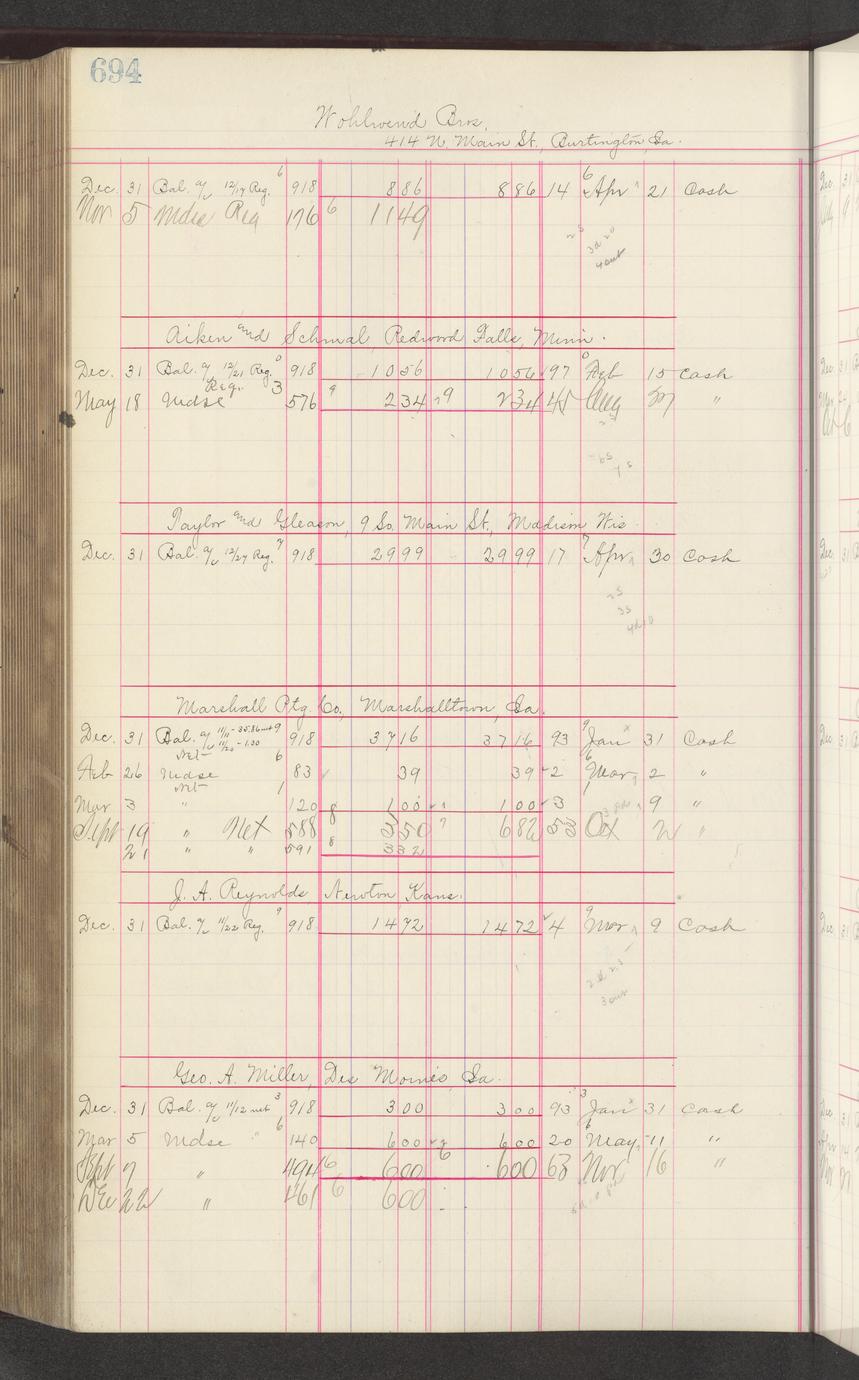 694
Wohlwend Bros.
414 N. Main St., Burlington, Ia.
6 6
Dec. 31 Bal. a/c 12/17 Reg. 918 886 886 14 Apr 21 Cash
Nov 5 Mdse Reg 176 6 1149
25
30 20
4 out
Aiken and Schmal, Redwood Falls, Minn.
Dec. 31 Bal. a/c 12/21 Reg. 0 918 1056 1056 97 0 Feb 15 Cash
Reg. 3
May 18 Mdse 576 9 234 9 234 45 Aug 27 "
Taylor and Gleason, 9 So. Main St., Madison Wis
Dec. 31 Bal. a/c 12/27 Reg. 7 918 2999 2999 17 7 Apr 30 Cash
25
35
Marshall Ptg. Co., Marshalltown, Ia.
Dec. 31 Bal. a/c 11/11 - 35.86 net 9 918 3716 3716 93 9 Jan 31 Cash
11/20 - 1.30
Net 6 6
Feb 26 Mdse 83 39 39 2 Mar 2 "
Net 1 1
Mar 3 " 120 100 100 3 9 "
Sept 19 " Net 588 8 350 682 53 Oct 2 "
21 " " 591 8 332
J. A. Reynolds Newton Kans.
Dec. 31 Bal. a/c 11/22 Reg. 9 918 1472 1472 4 9 Mar 9 Cash
3 our
Geo. A. Miller, Des Moines, Ia.
Dec. 31 Bal. a/c 11/12 net 3 918 300 300 93 3 Jan 31 Cash
6 6
Mar 5 Mdse " 140 600 600 20 May 11 "
Sept 7 " 494 6 600 6 600 63 Nov 16 "
Dec 22 " 461 6 600